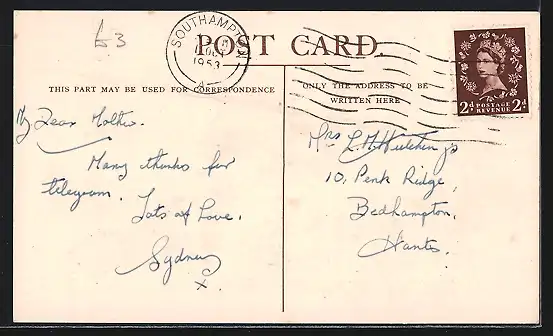 £3
SOUTHAMPTON
1953
A
POST CARD.
THIS PART MAY BE USED FOR CORRESPONDENCE
ONLY THE ADDRESS TO BE
WRITTEN HERE
2d POSTAGE 2d
REVENUE
My Dear Mother.
Many thanks for
telegram.
Lots of Love.
Sydney
x.
Mrs L. M. Hutchings
10, Penk Ridge,
Bedhampton,
Hants.